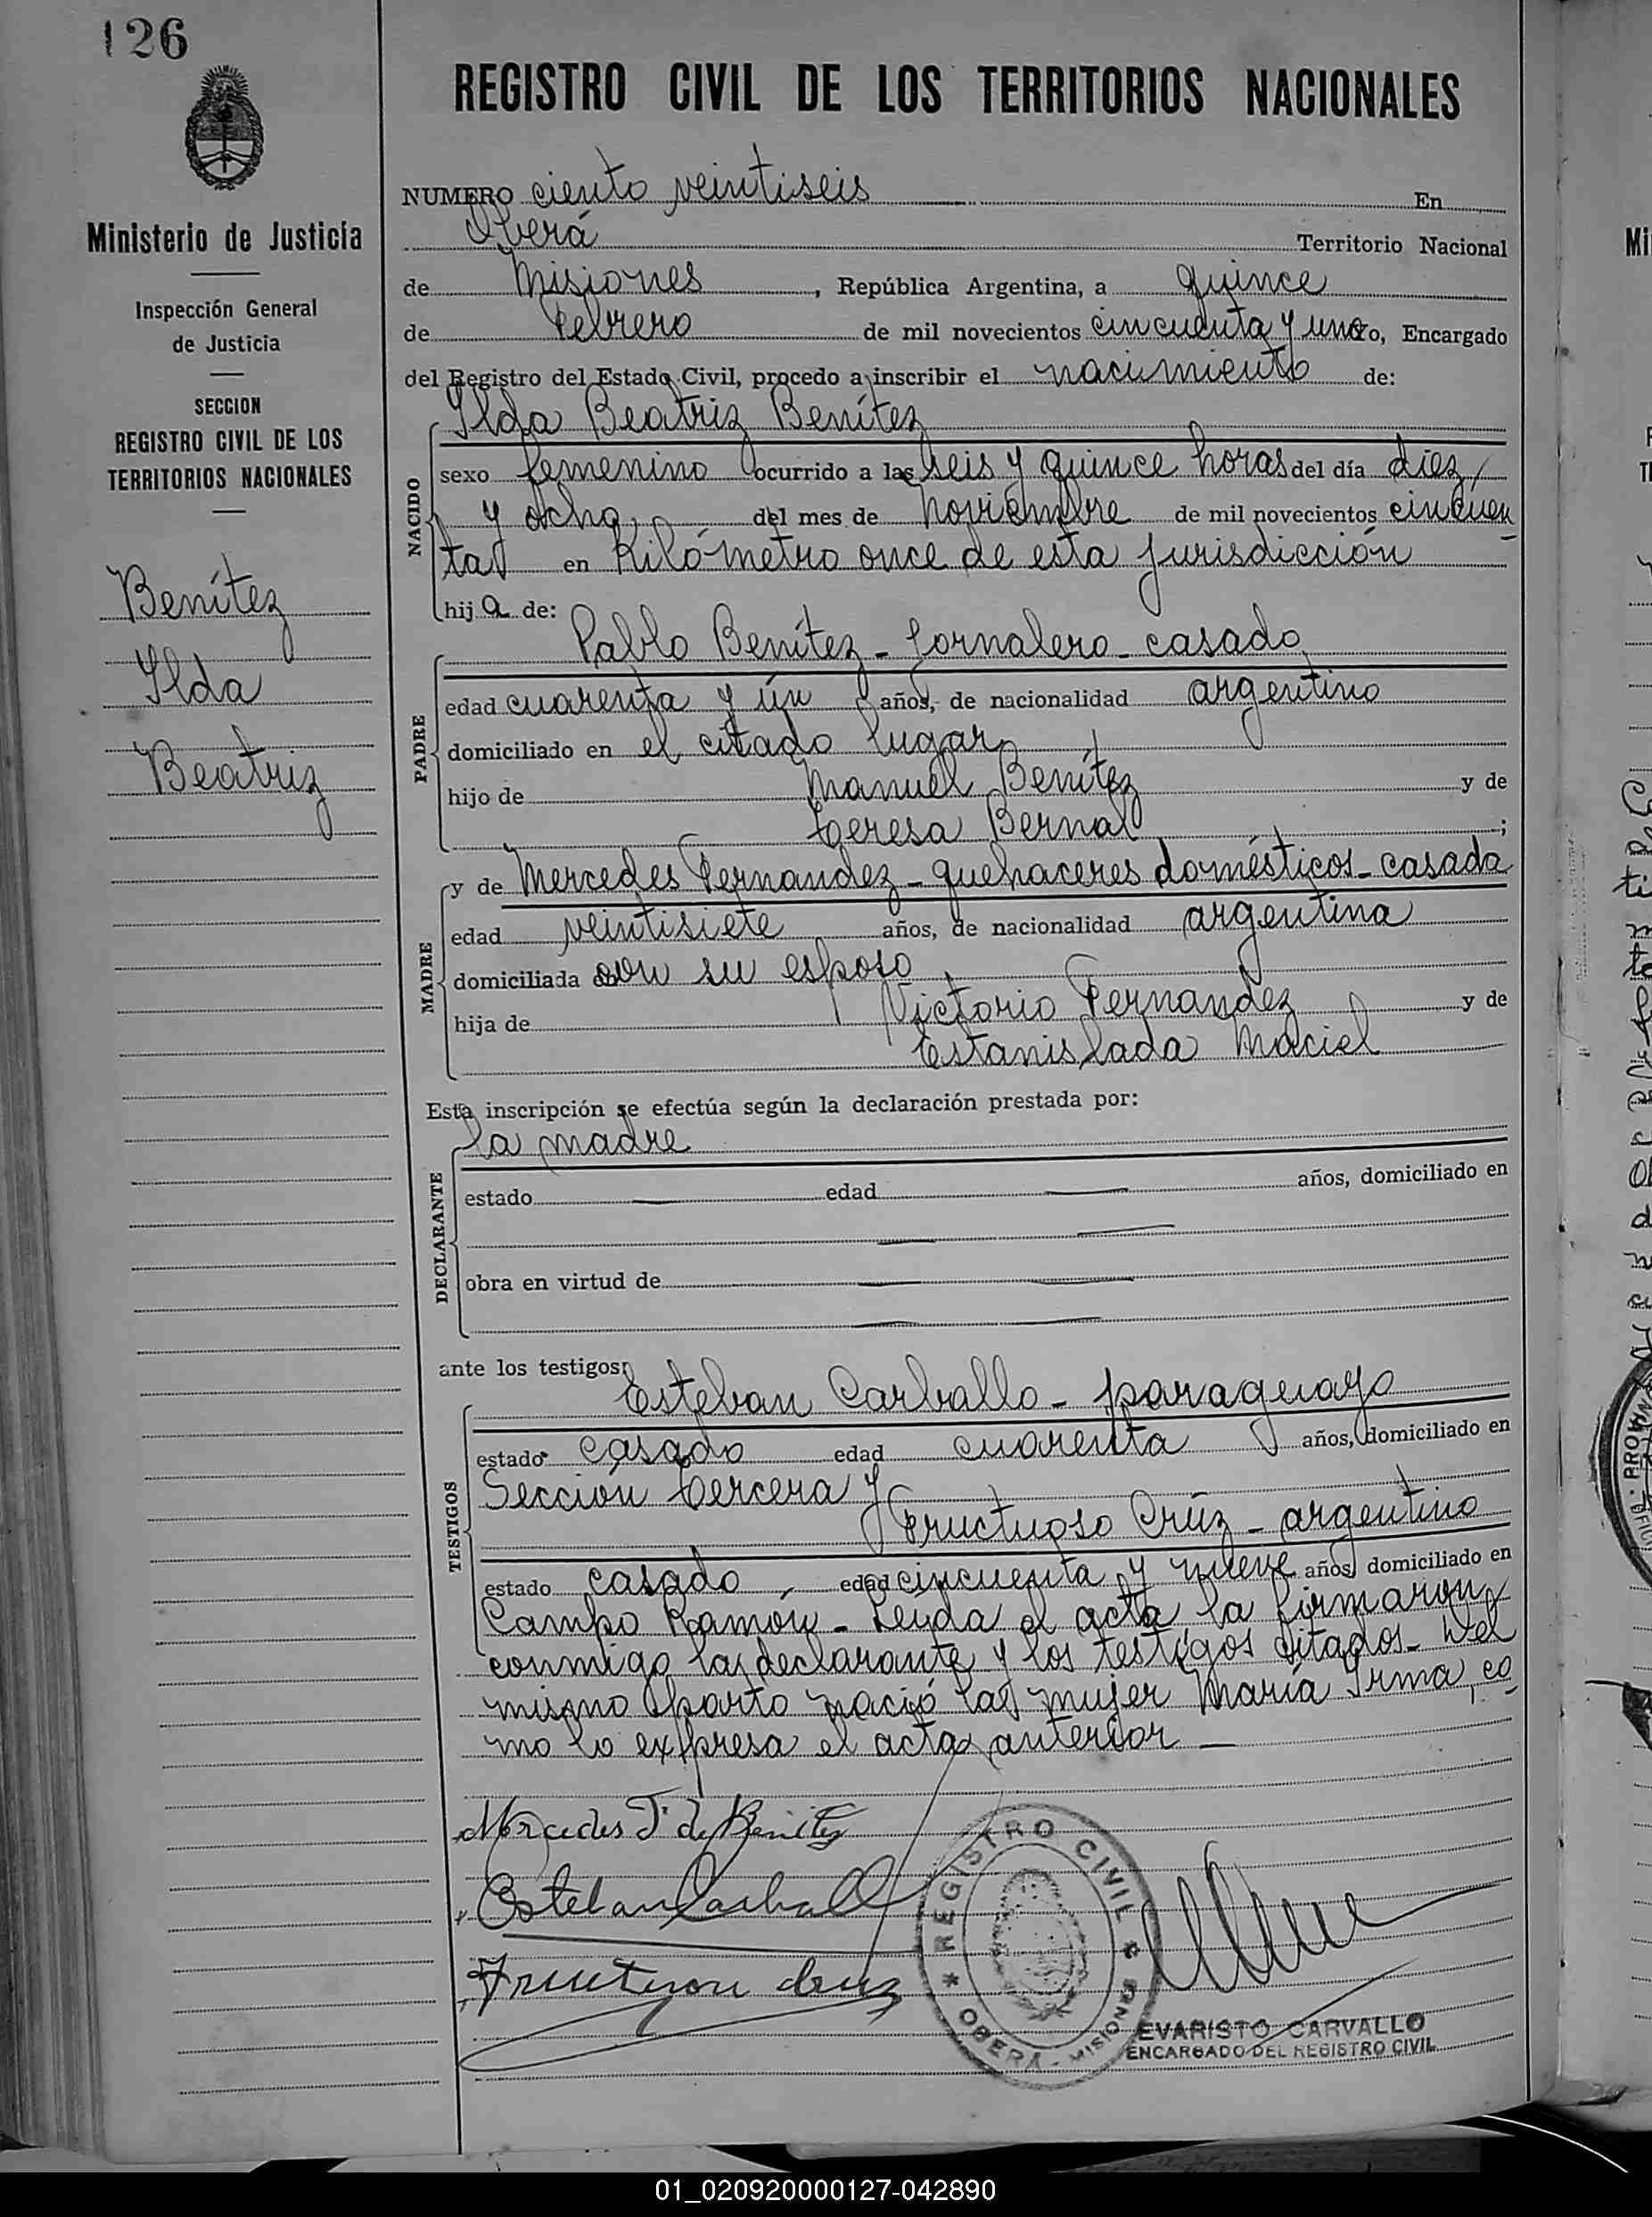 126
REGISTRO CIVIL DE LOS TERRITORIOS NACIONALES
Ministerio de Justicia
Inspección General
de Justicia
SECCION
REGISTRO CIVIL DE LOS
TERRITORIOS NACIONALES
Benítez
Ilda
Beatriz
NUMERO ciento veintiseis En
Oberá Territorio Nacional
de Misiones, República Argentina, a quince
de Febrero de mil novecientos cincuenta y uno, Encargado
del Registro del Estado Civil, procedo a inscribir el nacimiento de:
Ilda Beatriz Benítez
NACIDO
sexo femenino ocurrido a las seis y quince horas del día diez
y ocho, del mes de noviembre de mil novecientos cincuen
ta en Kilómetro once de esta jurisdicción
hija de:
PADRE
Pablo Benítez - Jornalero - casado
edad cuarenta y ún años, de nacionalidad argentino
domiciliado en el citado lugar
hijo de Manuel Benítez y de
Teresa Bernal ;
MADRE
y de Mercedes Fernandez - quehaceres domésticos - casada
edad veintisiete años, de nacionalidad argentina
domiciliada con su esposo
hija de Victorio Fernandez y de
Estanislada Maciel
Esta inscripción se efectúa según la declaración prestada por:
DECLARANTE
la madre
estado — edad — años, domiciliado en
obra en virtud de
ante los testigos:
TESTIGOS
Esteban Carballo - paraguayo
estado casado edad cuarenta años, domiciliado en
Sección tercera y
Fructuoso Crúz - argentino
estado casado, edad cincuenta y nueve años, domiciliado en
Campo Ramón - Leída el acta la firmaron
conmigo la declarante y los testigos citados - Del
mismo parto nació la mujer María Irma, co
mo lo expresa el acta anterior —
Mercedes F. de Benitez
Esteban Carballo
Fructuoso Cruz
REGISTRO CIVIL * OBERA - MISIONES *
EVARISTO CARVALLO
ENCARGADO DEL REGISTRO CIVIL
01_020920000127-042890